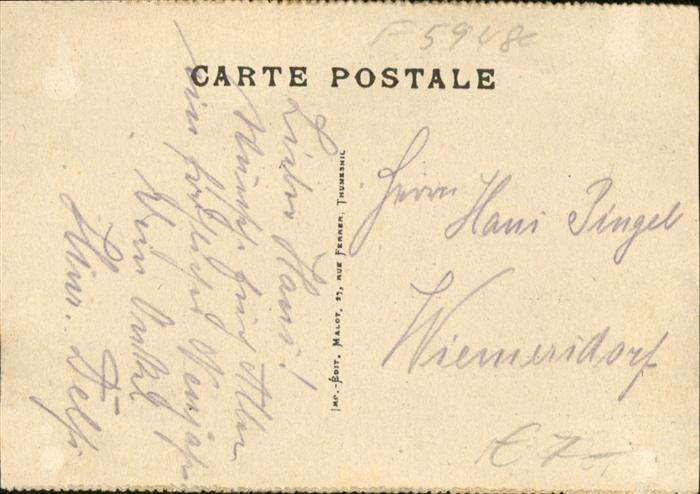 F 5948c
CARTE POSTALE
Lieber Hans!
Wünsche Euch Allen
ein fröhliches Neujahr
Dein Onkel
Hinr.
IMP.-ÉDIT. MALOT, 27, RUE FERRER, THUMESNIL
Herrn Hans Pingel
Wiemersdorf
€ 7,-